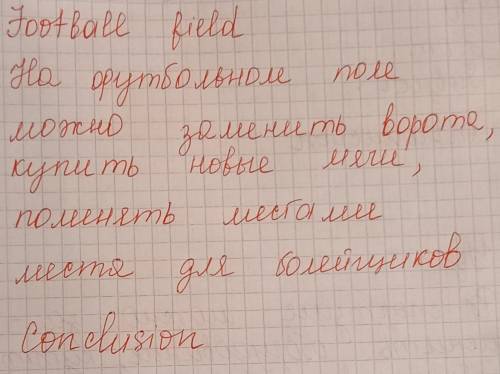 Football field
На футбольном поле
можно заменить ворота,
купить новые мячи,
поменять местами
места для болейщиков
Conclusion